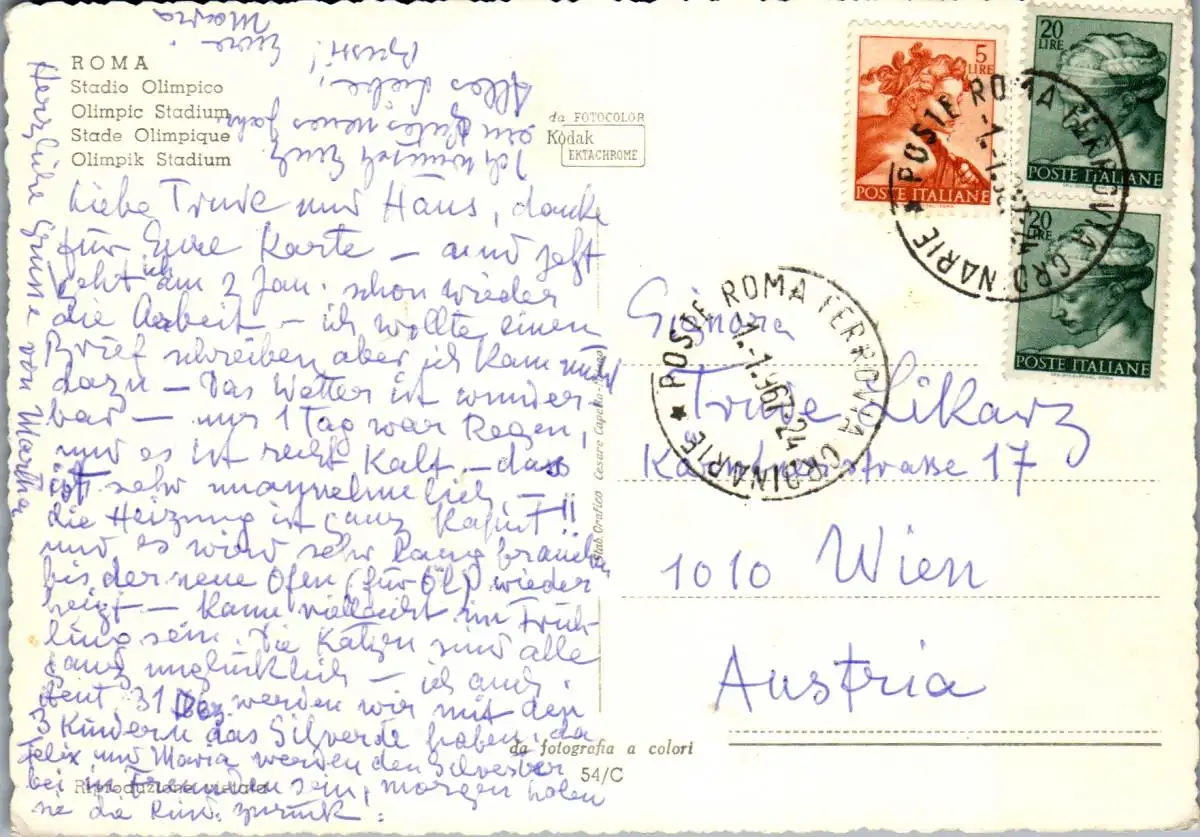 ROMA
Stadio Olimpico
Olimpic Stadium
Stade Olimpique
Olimpik Stadium
da FOTOCOLOR
Kodak
EKTACHROME
5
LIRE
POSTE ITALIANE
20
LIRE
POSTE ITALIANE
20
LIRE
POSTE ITALIANE
POSTE ROMA FERROVIA ORDINARIE
POSTE ROMA FERROVIA ORDINARIE
-1.-1.1967-24
Liebe Trude und Hans, danke
für Eure Karte – und jetzt
geht ich am 2 Jan. schon wieder
die Arbeit – ich wollte einen
Brief schreiben aber ich kam nicht
dazu – Das Wetter ist wunder-
bar – nur 1 Tag war Regen,
und es ist recht kalt – das
ist sehr unangenehm
die Heizung ist ganz kaputt!!
und es wird sehr lang brauchen
bis der neue Ofen (für Öl) wieder
heizt – kann vielleicht im Früh-
ling sein. Die Katzen sind alle
ganz unglücklich – ich auch.
Heut 31 Dez. werden wir mit den
3 Kindern das Silvester haben, da
Felix und Maria werden den Silvester
bei Freunden sein, morgen holen
sie die Kind. zurück.
Ich wünsch Euch
ein gutes neues Jahr
Alles Liebe,
Bussi!
Eure
Maria
Herzliche Grüsse von Martha
Signora
Trude Likarz
Kärntnerstrasse 17
1010 Wien
Austria
Stab. Grafico Cesare Capello
da fotografia a colori
54/C
Riproduzione vietata